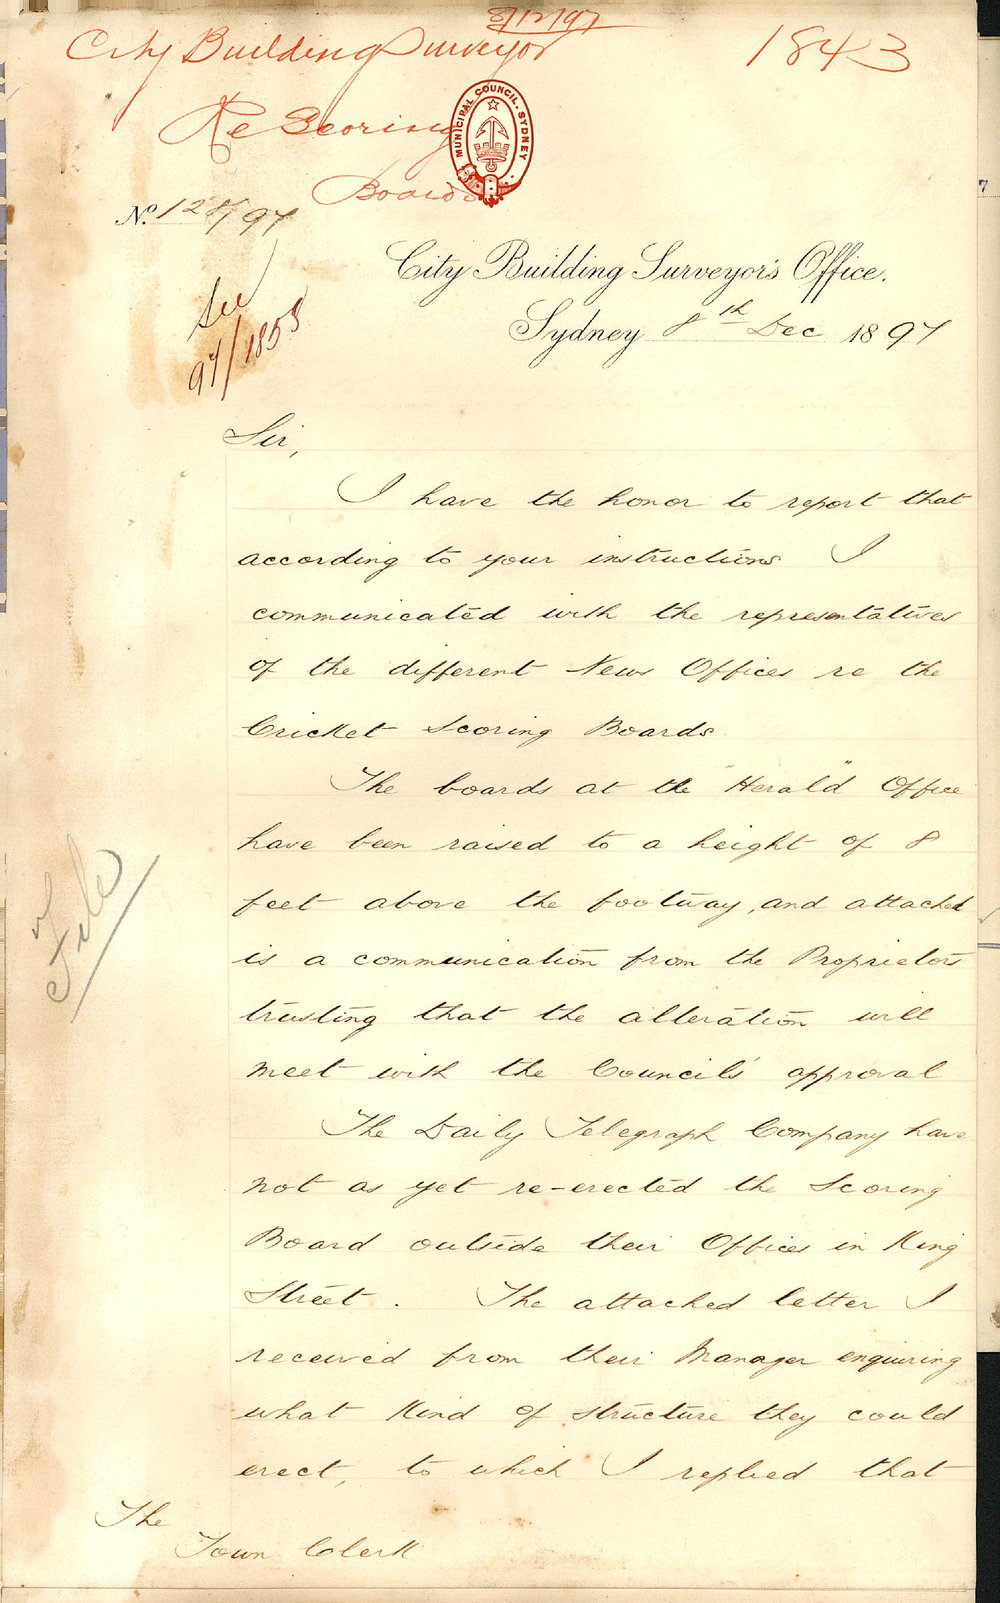 8/12/97
City Building Surveyor
1843
Re Scoring
Boards
MUNICIPAL COUNCIL. SYDNEY
No. 128/97
See
97/1853
City Building Surveyor's Office.
Sydney 8th Dec 1897
Sir,
I have the honor to report that
according to your instructions I
communicated with the representatives
of the different News Offices re the
Cricket Scoring Boards.
The boards at the "Herald" Office
have been raised to a height of 8
feet above the footway, and attached
is a communication from the Proprietors
trusting that the alteration will
meet with the Council's approval
The Daily Telegraph Company have
not as yet re-erected the Scoring
Board outside their Offices in King
Street. The attached letter I
received from their Manager enquiring
what kind of structure they could
erect, to which I replied that
The
Town Clerk
File
7